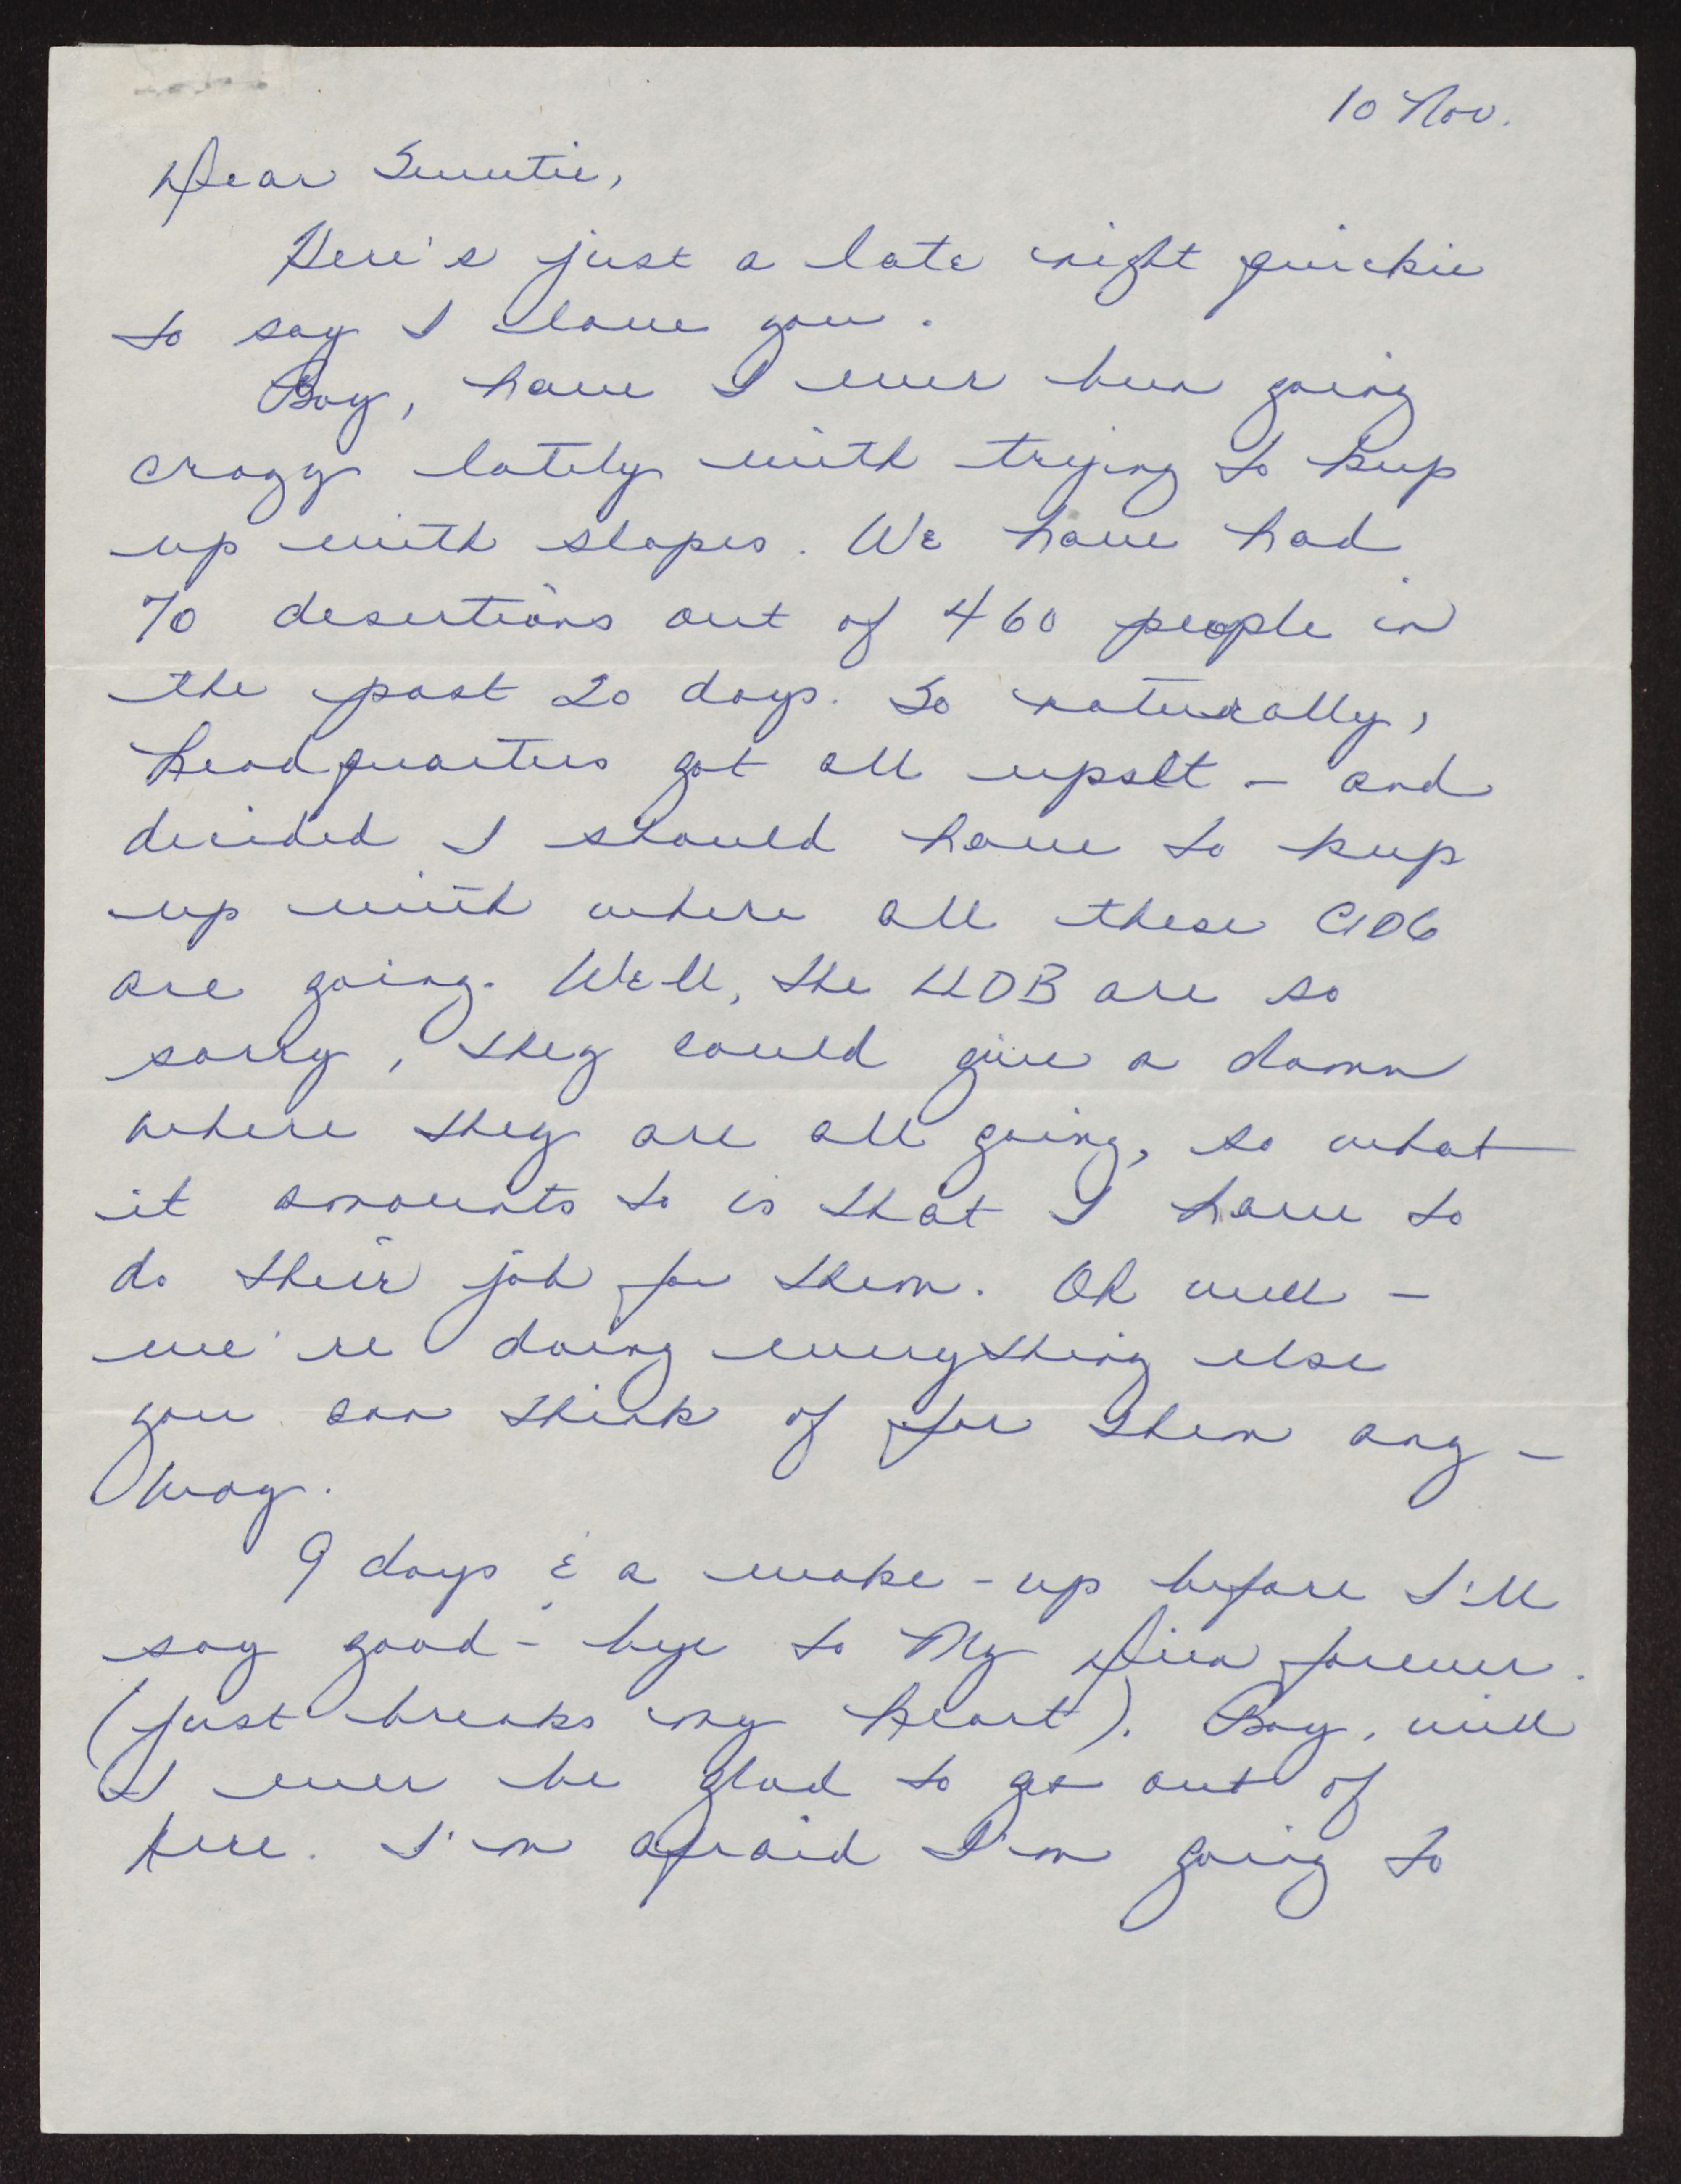 10 Nov.
Dear Sweetie,
Here's just a late night quickie
to say I love you.
Boy, have I ever been going
crazy lately with trying to keep
up with slopes. We have had
70 desertions out of 460 people in
the past 20 days. So naturally,
headquarters got all upset - and
decided I should have to keep
up with where all these CIDG
are going. Well, the LLDB are so
sorry, they could give a damn
where they are all going, so what
it amounts to is that I have to
do their job for them. Oh well -
we're doing everything else
you can think of for them any-
way.
9 days & a wake-up before I'll
say good-bye to My Dien forever.
(just breaks my heart). Boy, will
I ever be glad to get out of
here. I'm afraid I'm going to